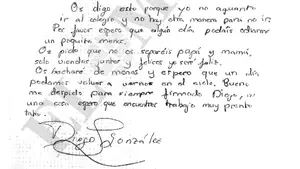 Os digo esto porque yo no aguanto
ir al colegio y no hay otra manera para no ir.
Por favor espero que algún día podáis odiarme
un poquito menos.
Os pido que no os separéis papá y mamá,
solo viendoos juntos y felices yo seré feliz.
Os echaré de menos y espero que un día
podamos volver a vernos en el cielo. Bueno
me despido para siempre firmado Diego, ah
una cosa espero que encuentres trabajo muy pronto
tata.
Diego González